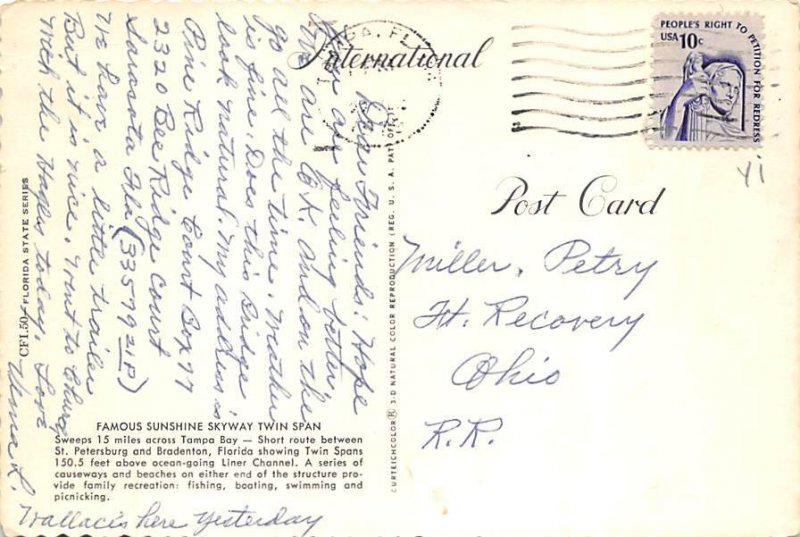 International
Post Card
PEOPLE'S RIGHT TO PETITION FOR REDRESS
USA 10c
TAMPA, FL
Dear Friends: Hope
your are feeling better.
We are O.K. and on the
go all the time. Weather
is fine. Does this Bridge
look natural. My address is
Pine Ridge Court Box 77
2320 Bee Ridge Court
Sarasota Fla (33579 ZIP)
We have a little trailer
But it is nice. Went to Church
with the Hayes today. Love
Verna L.
Wallace's here yesterday
Miller, Petry
Ft. Recovery
Ohio
R.R.
41
FAMOUS SUNSHINE SKYWAY TWIN SPAN
Sweeps 15 miles across Tampa Bay — Short route between
St. Petersburg and Bradenton, Florida showing Twin Spans
150.5 feet above ocean-going Liner Channel. A series of
causeways and beaches on either end of the structure pro-
vide family recreation: fishing, boating, swimming and
picnicking.
CFL50—FLORIDA STATE SERIES
CURTEICHCOLOR® 3-D NATURAL COLOR REPRODUCTION (REG. U. S. A. PAT. OFF.)